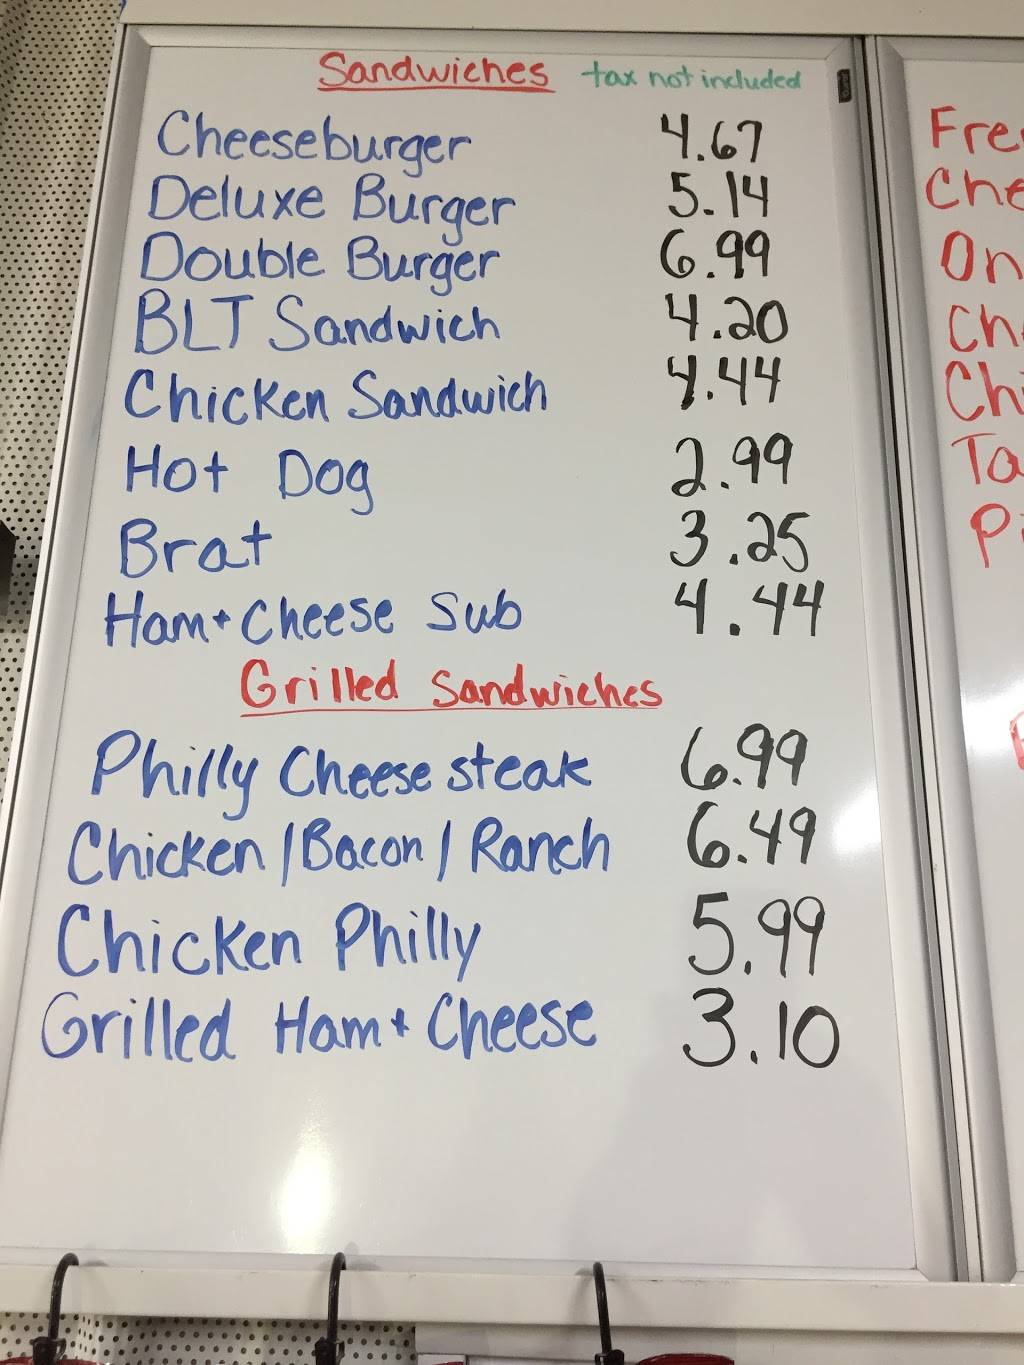 Sandwiches tax not included
Cheeseburger 4.67
Deluxe Burger 5.14
Double Burger 6.99
BLT Sandwich 4.20
Chicken Sandwich 4.44
Hot Dog 2.99
Brat 3.25
Ham + Cheese Sub 4.44
Grilled Sandwiches
Philly Cheese steak 6.99
Chicken / Bacon / Ranch 6.49
Chicken Philly 5.99
Grilled Ham + Cheese 3.10